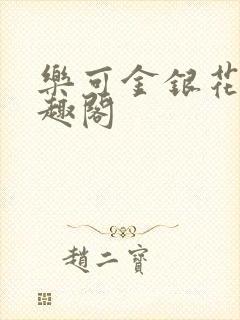 樂可金銀花
趣閣
趙二寶